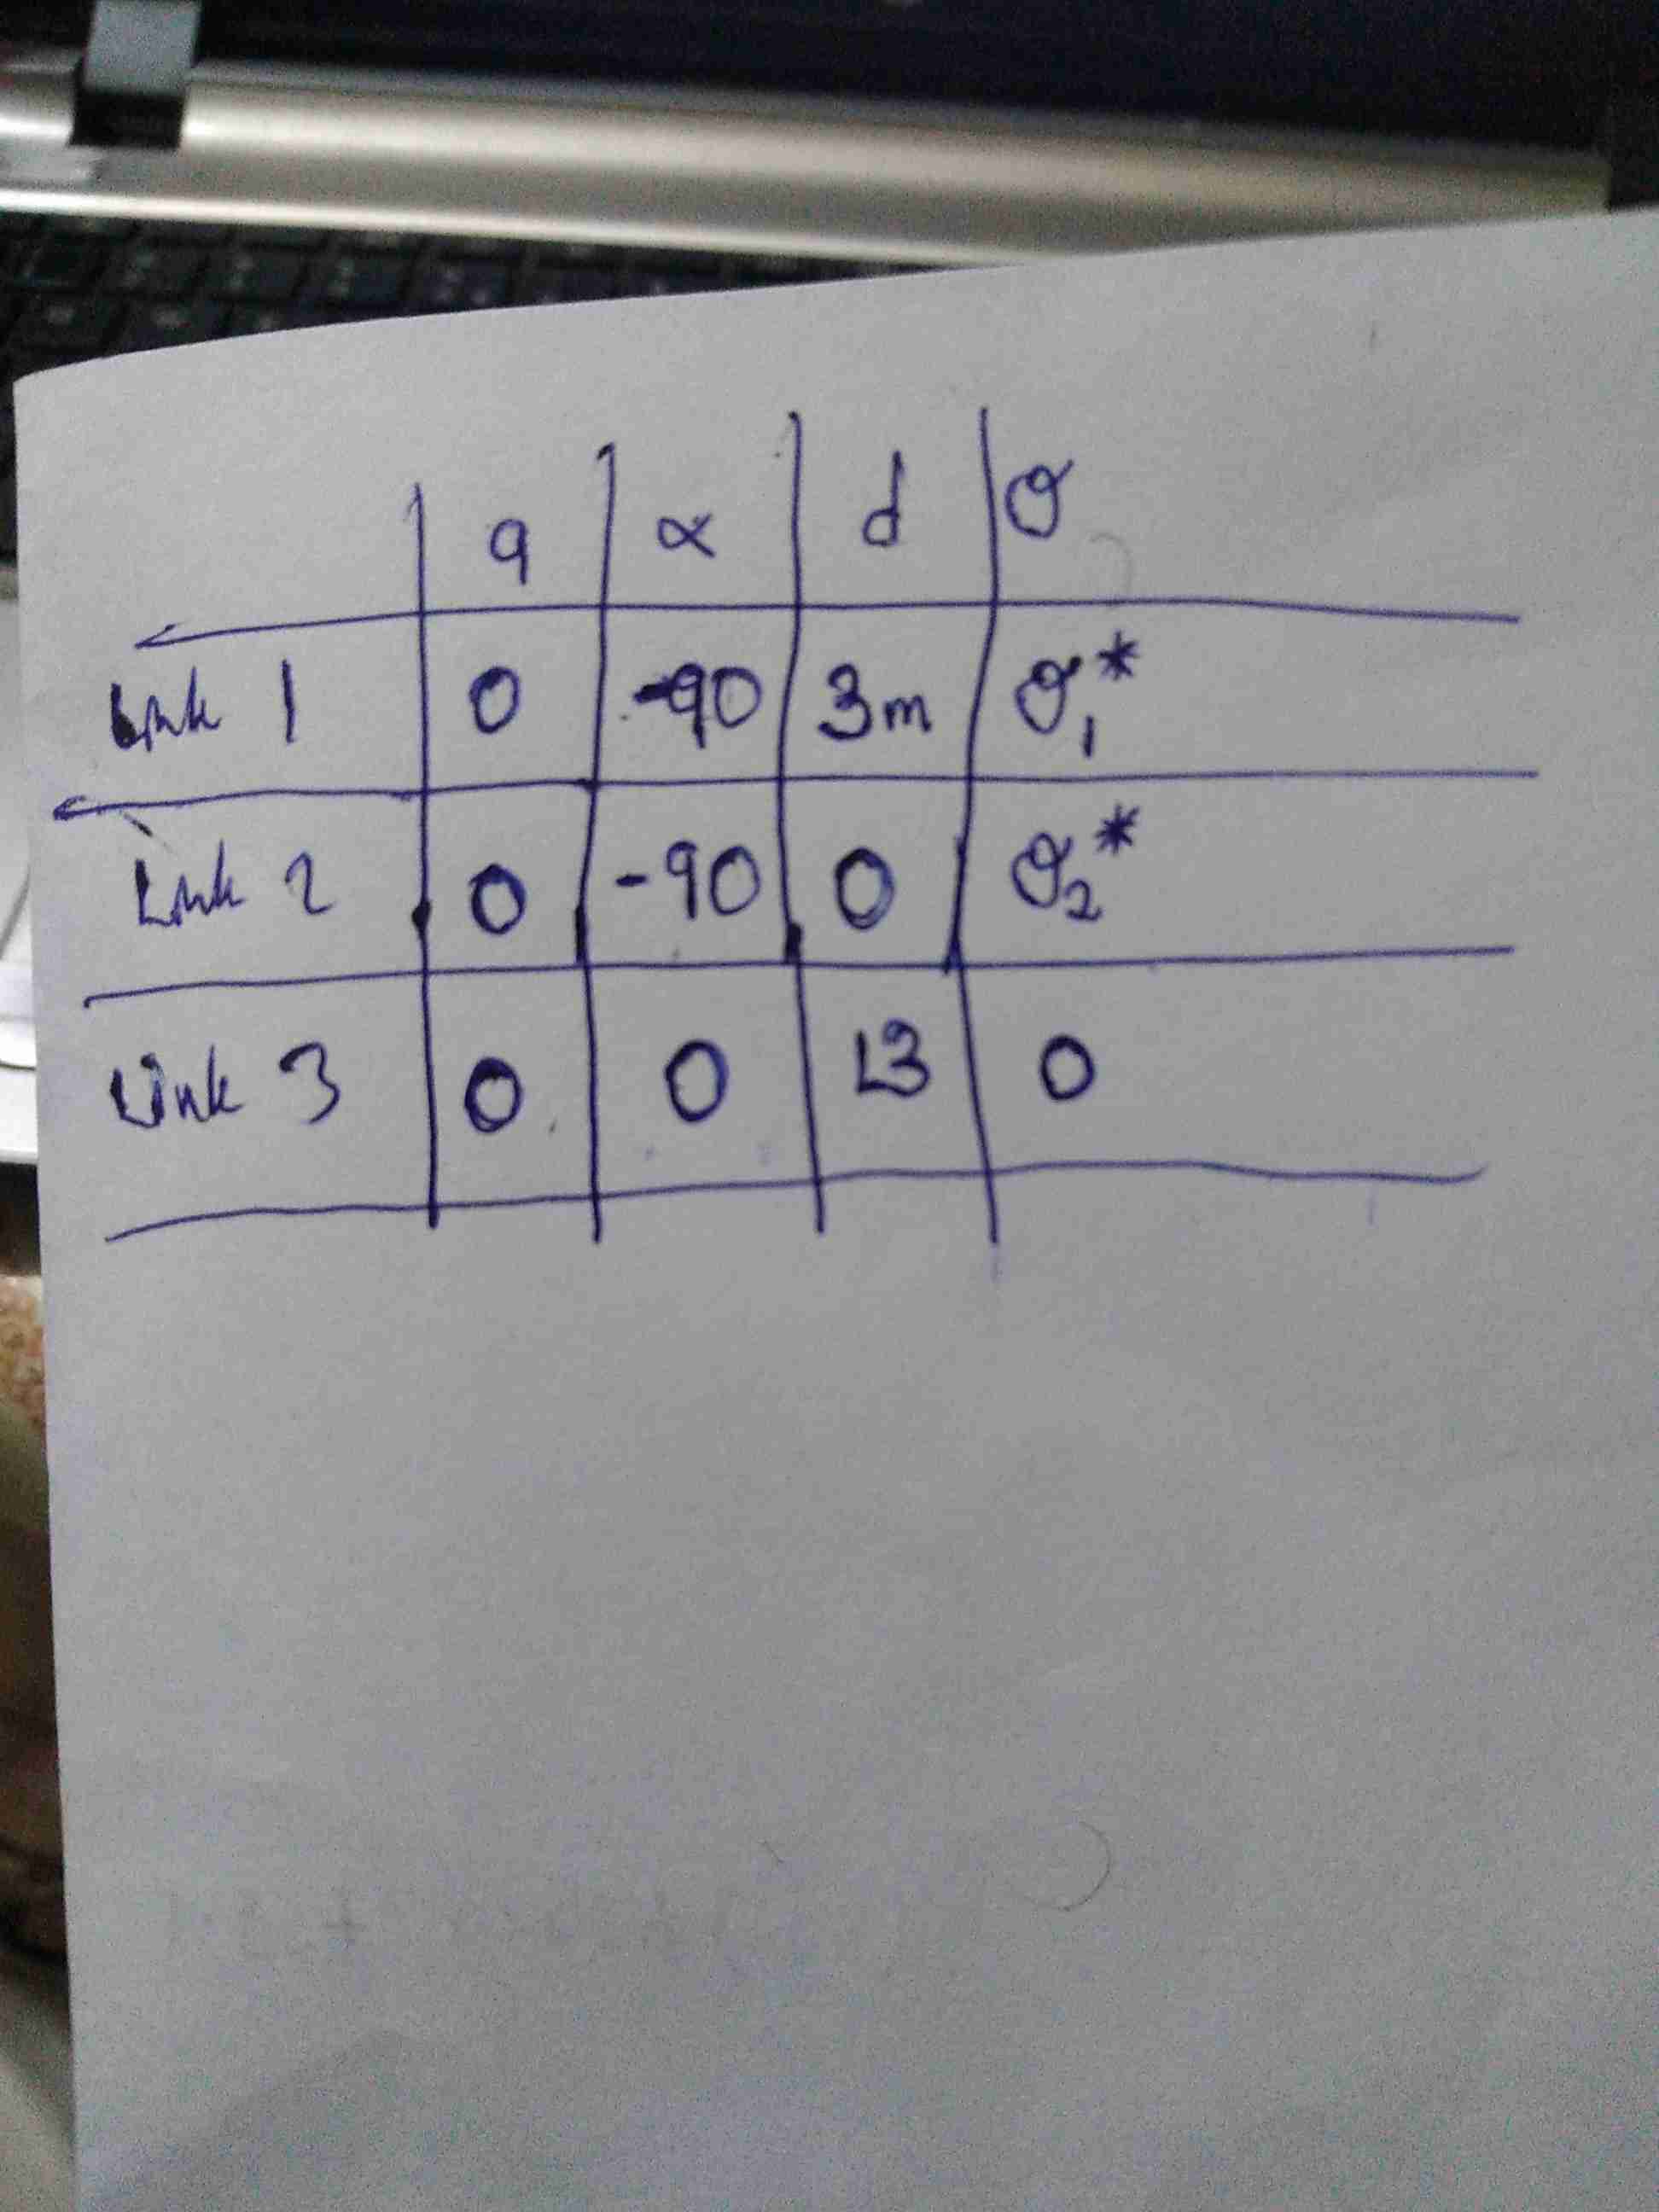 a α d θ
Link 1 0 -90 3m θ1*
Link 2 0 -90 0 θ2*
Link 3 0 0 L3 0